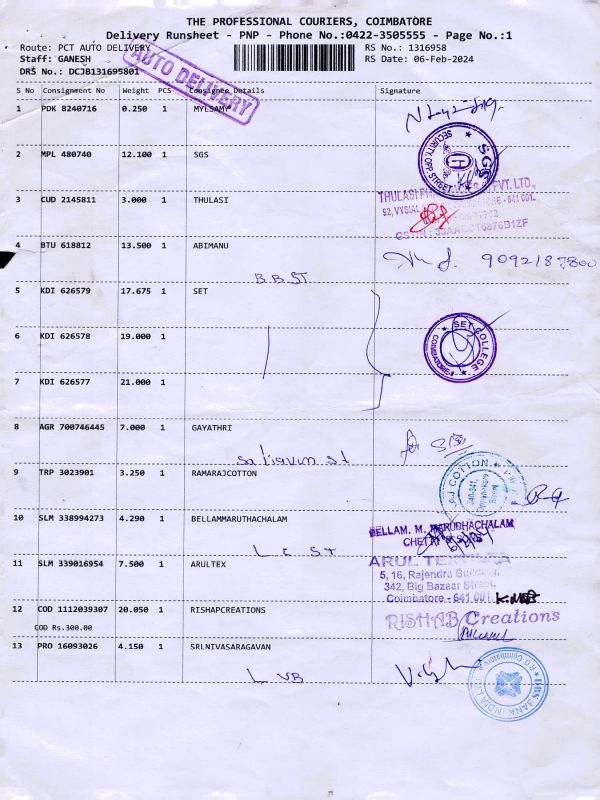 THE PROFESSIONAL COURIERS, COIMBATORE
Delivery Runsheet - PNP - Phone No.:0422-3505555 - Page No.:1
Route: PCT AUTO DELIVERY RS No.: 1316958
Staff: GANESH RS Date: 06-Feb-2024
DRS No.: DCJB131695801
AUTO DELIVERY
S No Consignment No Weight PCS Consignee Details Signature
1 PDK 8240716 0.250 1 MYLSAMY
2 MPL 480740 12.100 1 SGS
SECURITY, OPP. STREET SGS
3 CUD 2145811 3.000 1 THULASI
THULASI PVT. LTD.,
92, VYSIAL 641 001.
4 BTU 618812 13.500 1 ABIMANU
9092187800
B.B.ST
5 KDI 626579 17.675 1 SET
6 KDI 626578 19.000 1
SET COLLEGE
COIMBATORE-4
7 KDI 626577 21.000 1
8 AGR 700746445 7.000 1 GAYATHRI
St
9 TRP 3023901 3.250 1 RAMARAJCOTTON
COTTON
10 SLM 338994273 4.290 1 BELLAMMARUTHACHALAM
BELLAM. M. MARUDHACHALAM
CHETTY
L C ST
11 SLM 339016954 7.500 1 ARULTEX
ARUL TEXTILES
5, 16, Rajendra Building,
342, Big Bazaar Street,
Coimbatore - 641 001
12 COD 1112039307 20.050 1 RISHAPCREATIONS
COD Rs.300.00
RISHAB Creations
13 PRO 16093026 4.150 1 SRLNIVASARAGAVAN
L VB
DBS BANK INDIA LTD R.O Coimbatore